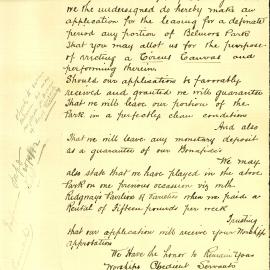 We the undersigned do hereby make an
application for the leasing for a definate
period any portion of Belmore Park
That you may allot us for the purpose
of erecting a Circus Canvas and
performing therein
Should our application be favorably
received and granted we will guarantee
That we will leave our portion of the
Park in a perfectly clean condition
And also
That we will leave any monetary deposit
as a guarantee of our Bonafide's
We may
also state that we have played in the above
Park on one previous occasion viz with
Ridgway's Pavilion of Varieties when we paid a
Rental of Fifteen pounds per week
Trusting
that our application will receive your Worship's
approbation
We Have the honor to Remain Your
Worships Obedient Servants